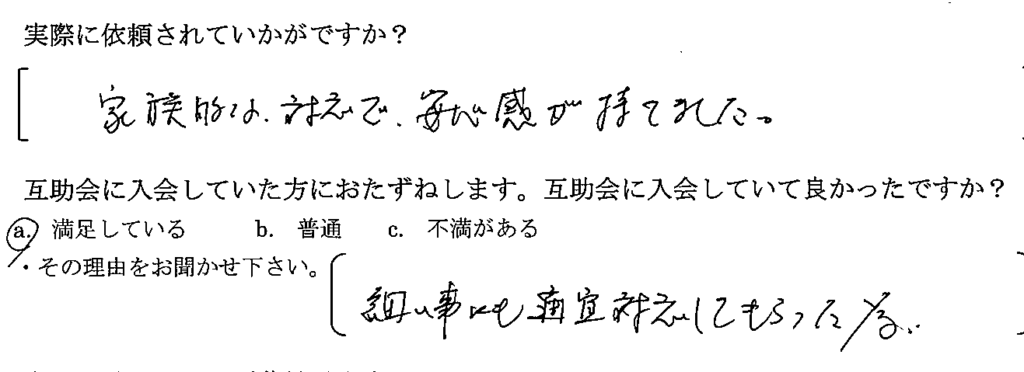 実際に依頼されていかがですか？
家族的な、対応で、安心感が持てました。
互助会に入会していた方におたずねします。互助会に入会していて良かったですか？
a. 満足している b. 普通 c. 不満がある
・その理由をお聞かせ下さい。
細い事にも適宜対応してもらった